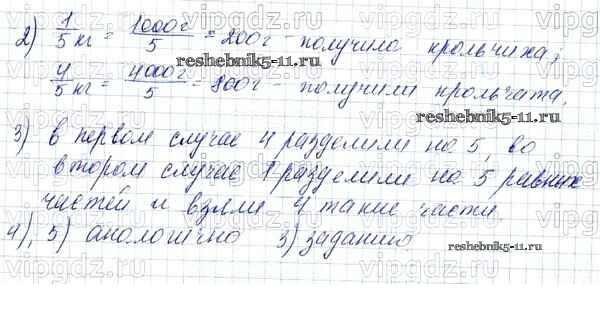 2) 1/5 кг = 1000г/5 = 200г - получила крольчиха;
4/5 кг = 4000г/5 = 800г - получили крольчата.
3) в первом случае 4 разделили на 5, во
втором случае 1 разделили на 5 равных
частей и взяли 4 такие части
4), 5) аналогично 3) заданию
reshebnik5-11.ru
reshebnik5-11.ru
reshebnik5-11.ru
vipgdz.ru